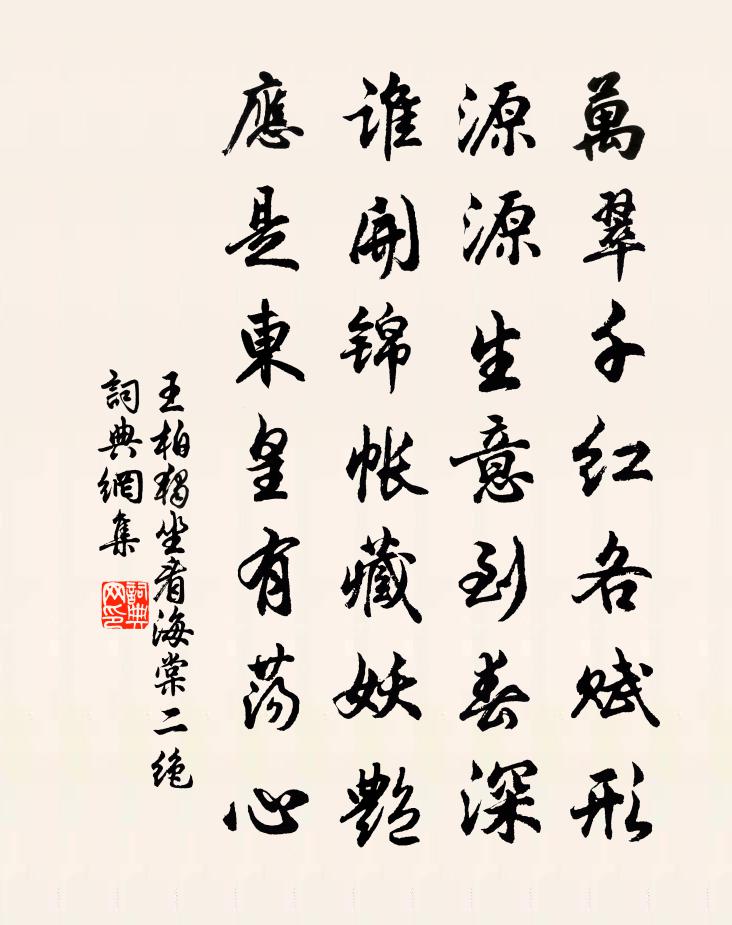 萬翠千红各赋形
源源生意到春深
谁開锦帐藏妖艷
應是東皇有荡心
王柏獨坐看海棠二绝
詞典網集
詞典网印